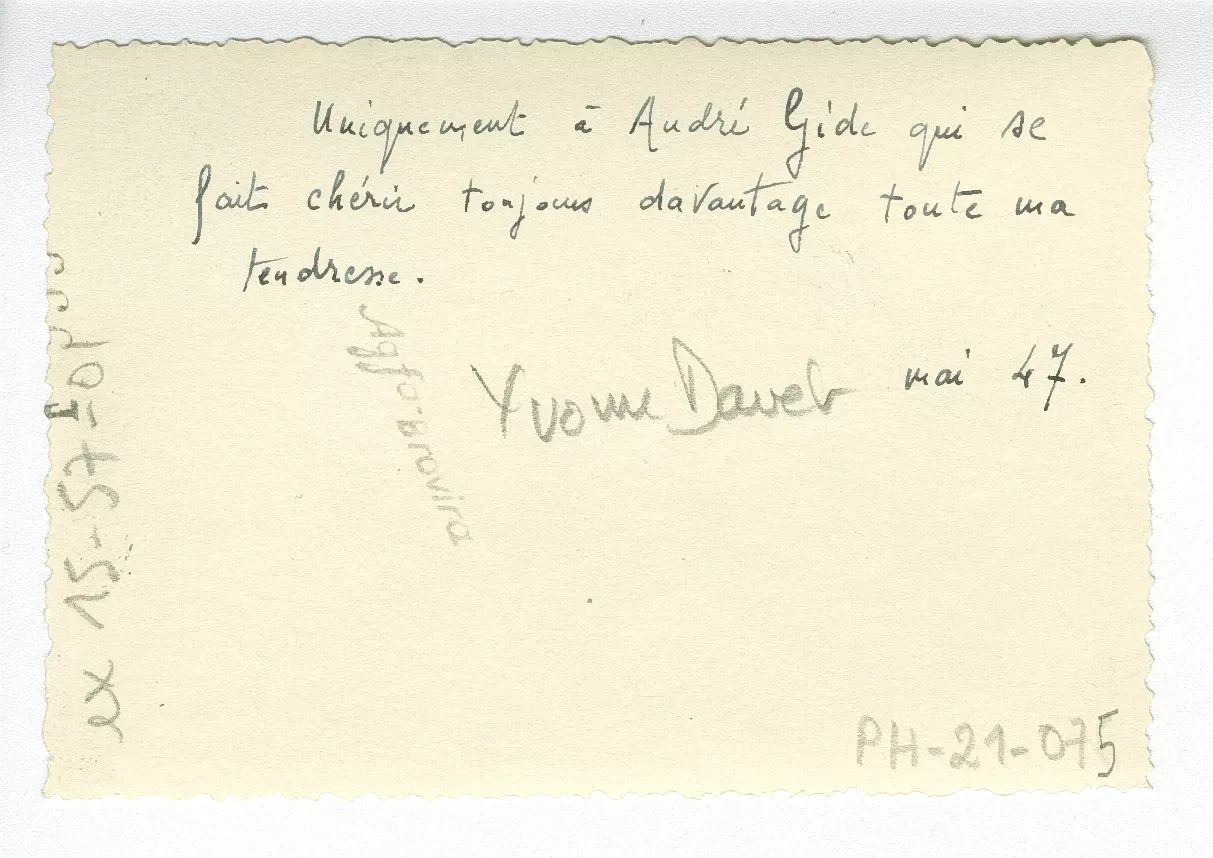 Uniquement à André Gide qui se
fait chérir toujours davantage toute ma
tendresse.
Yvonne Davet
mai 47.
Agfa-Brovira
ex 15-57-01
PH-21-075